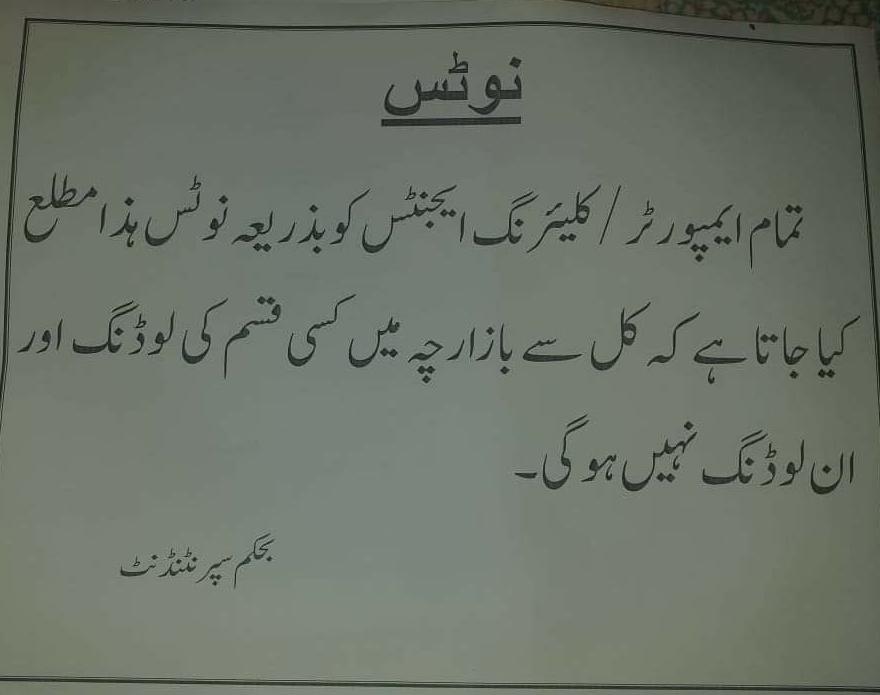 نوٹس
تمام ایمپورٹر / کلیئرنگ ایجنٹس کو بذریعہ نوٹس ہذا مطلع
کیا جاتا ہے کہ کل سے بازارچہ میں کسی قسم کی لوڈنگ اور
ان لوڈنگ نہیں ہوگی۔
بحکم سپرنٹنڈنٹ